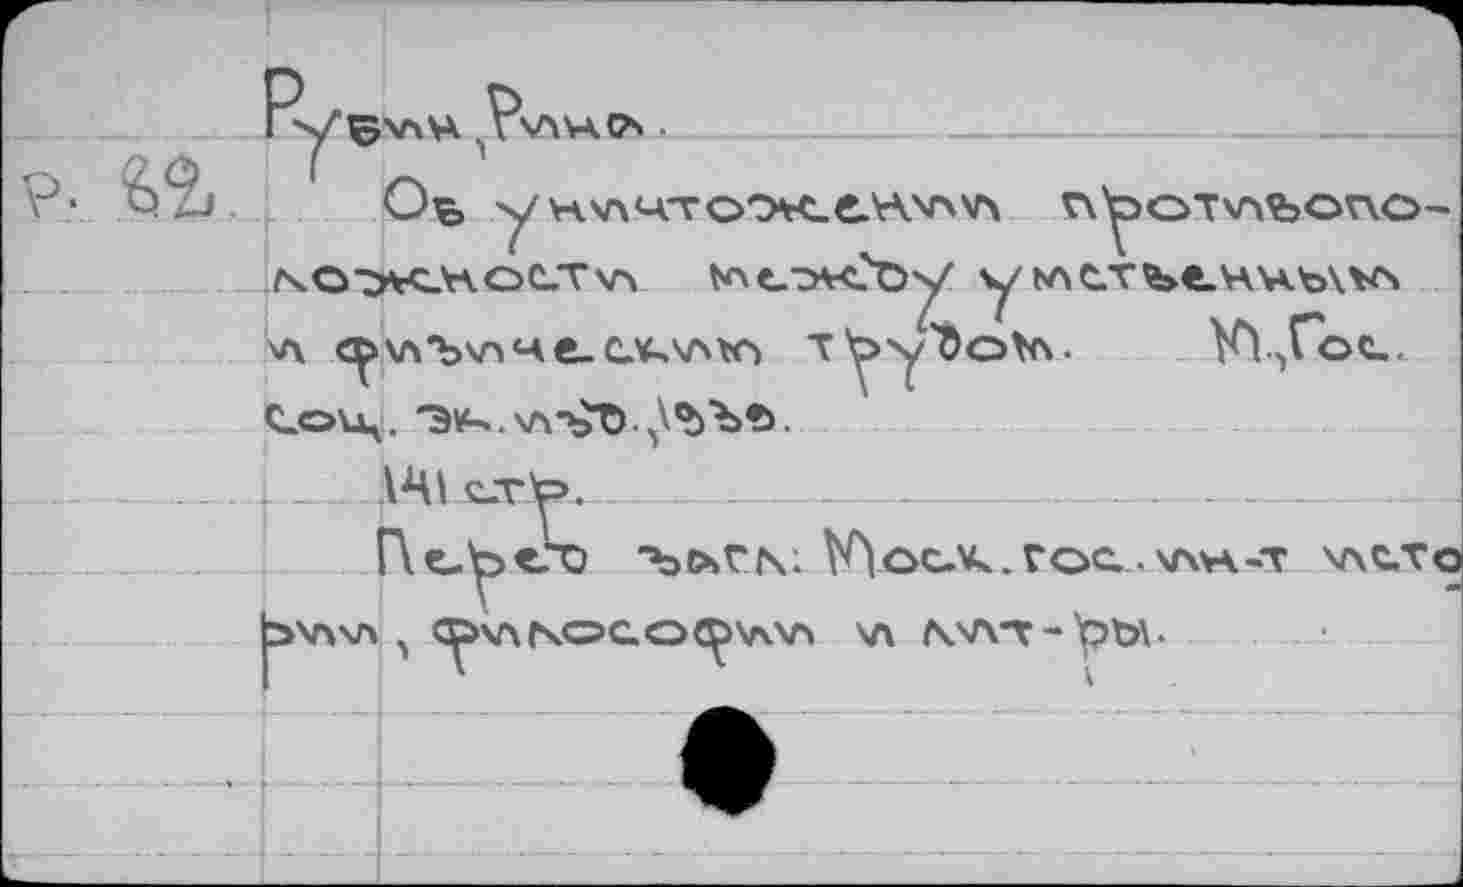 Рубин, Рина.
Р. 82. Об уничтожении противополо-
ложности между умственным
и физическим трудом. М.,Гос.
соц. эк. изд.,1933.
141 стр.
Перед загл: Моск. гос. ин-т исто
рии, философии и лит-ры.